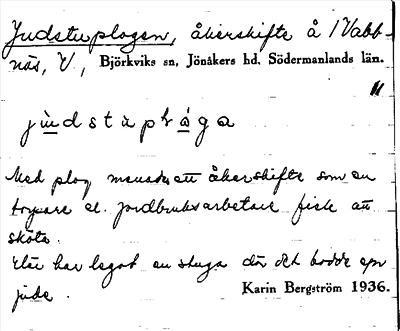 Judstuplogen, åkerskifte å Nabb-
näs, V, Björkviks sn, Jönåkers hd, Södermanlands län.
"
Med plog menades ett åkerskifte som en
torpare el. jordbruksarbetare fick att
sköta.
Här har legat en stuga där det bodde en
jude. Karin Bergström 1936.